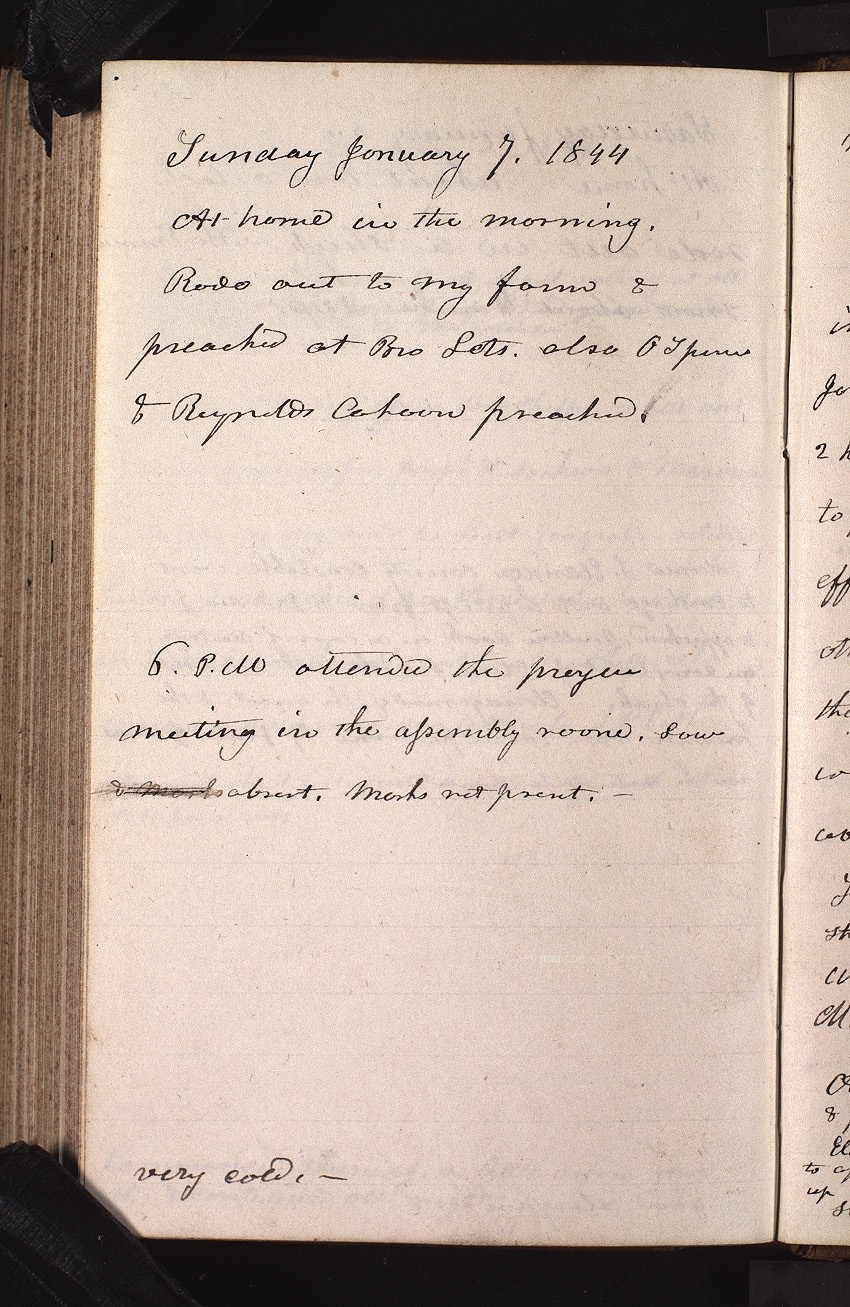 Sunday January 7. 1844
At home in the morning.
Rode out to my farm &
preached at Bro Lots. also O Spencer
& Reynolds Cahoon preached.
6. P.M attended the prayer
meeting in the assembly room. Law
& Marks absent. Marks not present. —
very cold. —
2 h
to
eff
oth
the
co
st
M
&
El
to
up